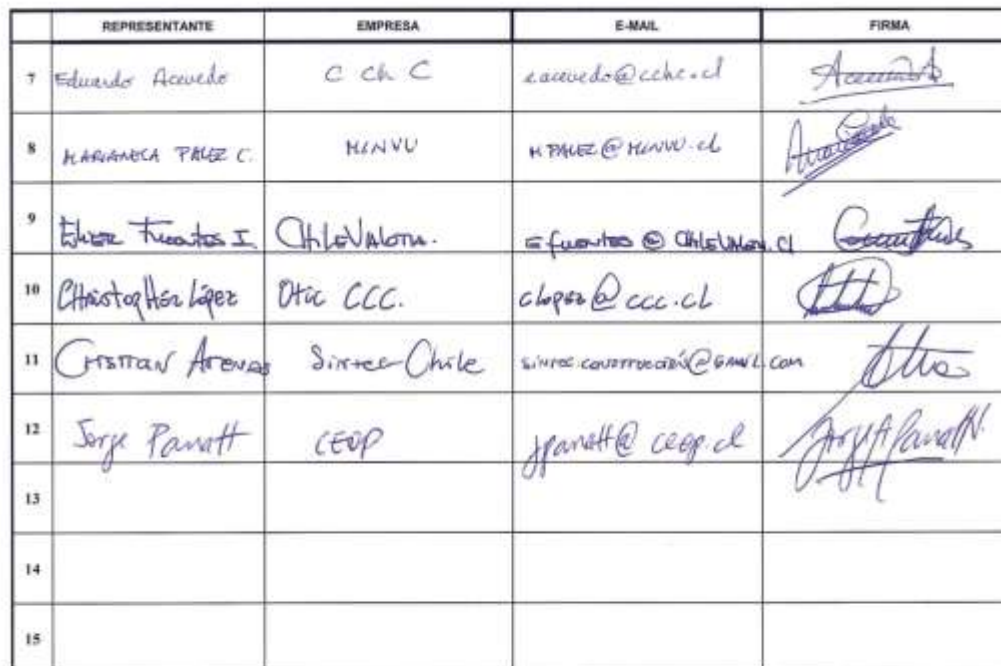 REPRESENTANTE EMPRESA E-MAIL FIRMA
7 Eduardo Acevedo C Ch C eacevedo@cchc.cl
8 MARIANELA C. MINVU @MINVU.cl
9 Fuentes I. CHILEVALORA. efuentes@CHILEVALORA.Cl
10 CHristopHer López Otic CCC. clopez@ccc.cl
11 CRISTIAN ArenAs Sintec Chile sintec.construcción@GMAIL.com
12 Jorge Panatt CEOP jpanatt@ceop.cl
13
14
15